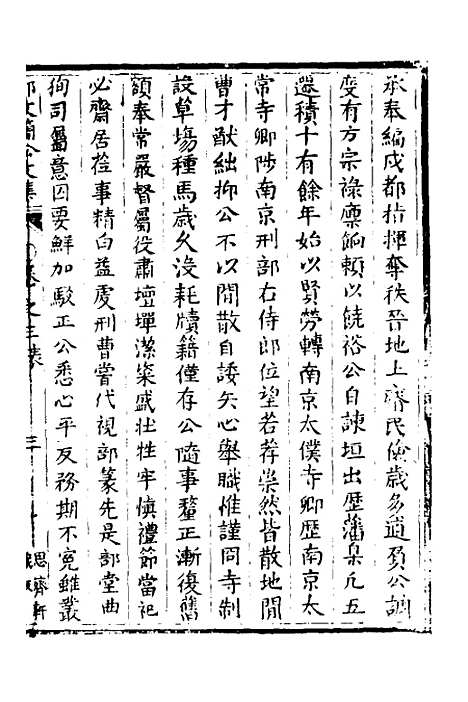 承奉編戍都指揮奪秩晉地上瘠民儉歲多逋負公調
度有方宗祿廪餉賴以饒裕公自諫垣出歴藩臬凡五
遷積十有餘年始以賢勞轉南京太僕寺卿歴南京太
常寺卿陟南京刑部右侍郎位望若荐崇然皆散地閒
曹才猷絀抑公不以閒散自諉矢心舉職惟謹冏寺制
設草塲種馬歲久沒耗牘籍僅存公隨事釐正漸復舊
額奉常嚴督屬役肅壇墠潔粢盛壯牲牢慎禮節當祀
必齋居莅事精白益虔刑曹嘗代視部篆先是部堂曲
徇司屬意囚要鮮加駁正公悉心平反务期不寃雖叢
文簡公文集
卷之三
三
思齊軒